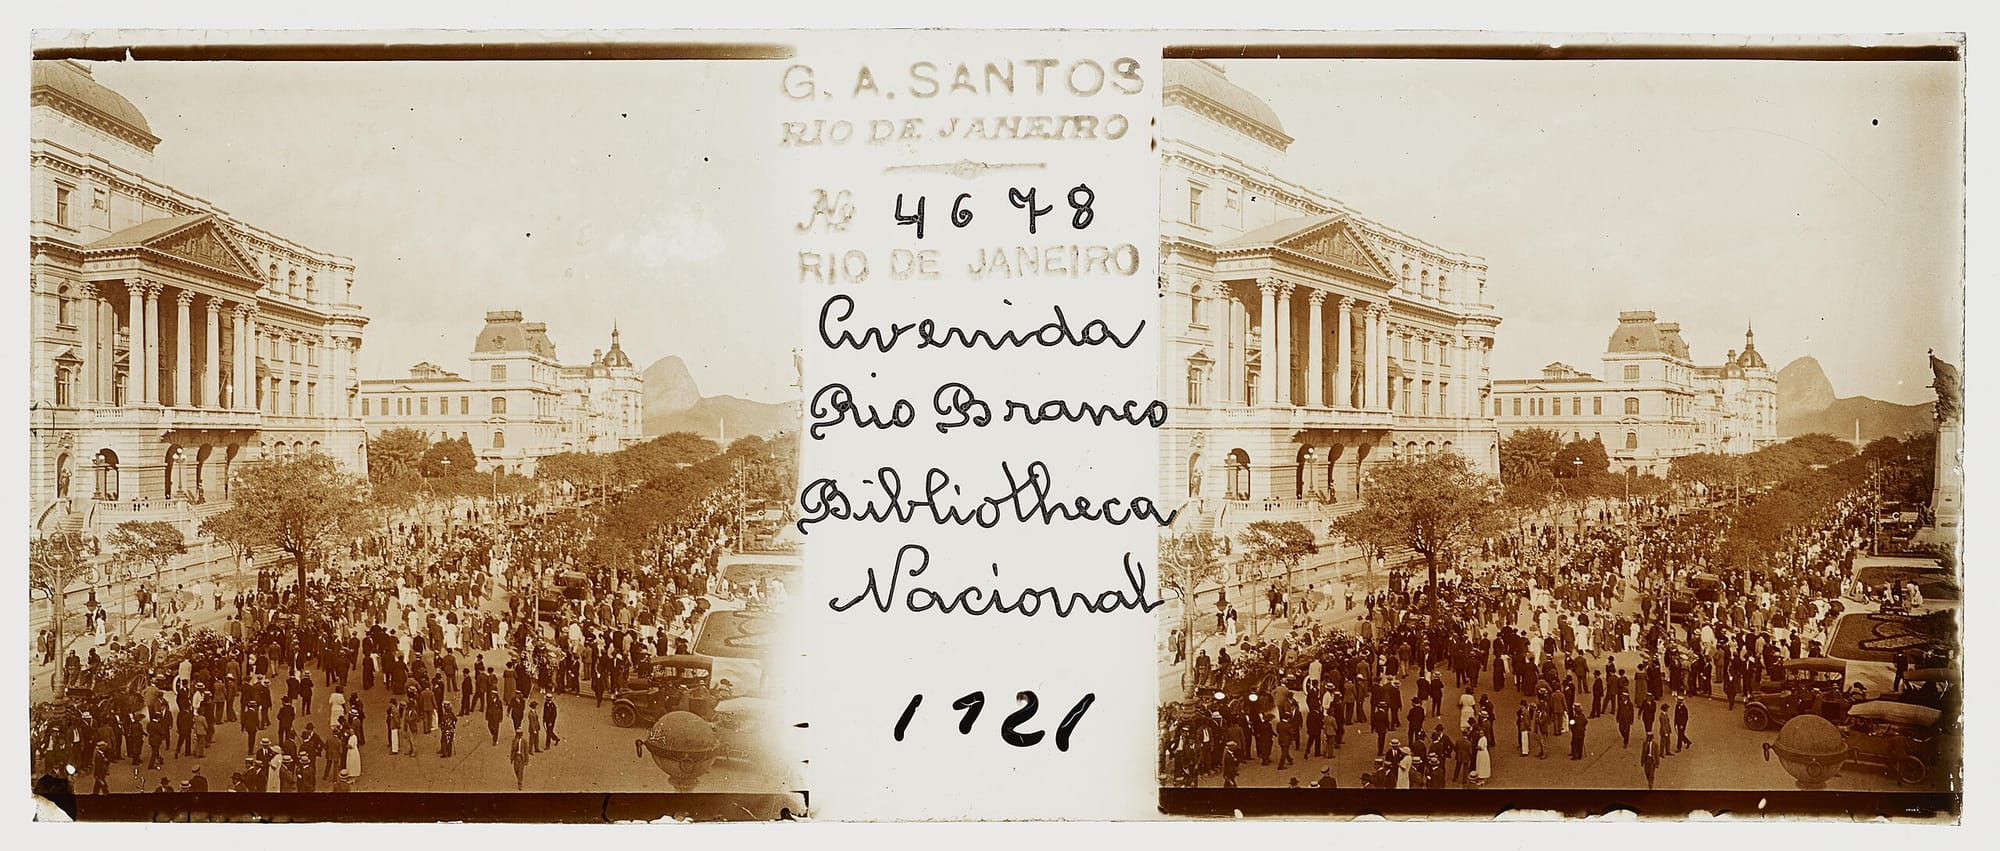 G. A. SANTOS
RIO DE JANEIRO
No 4678
RIO DE JANEIRO
Avenida
Rio Branco
Bibliotheca
Nacional
1921